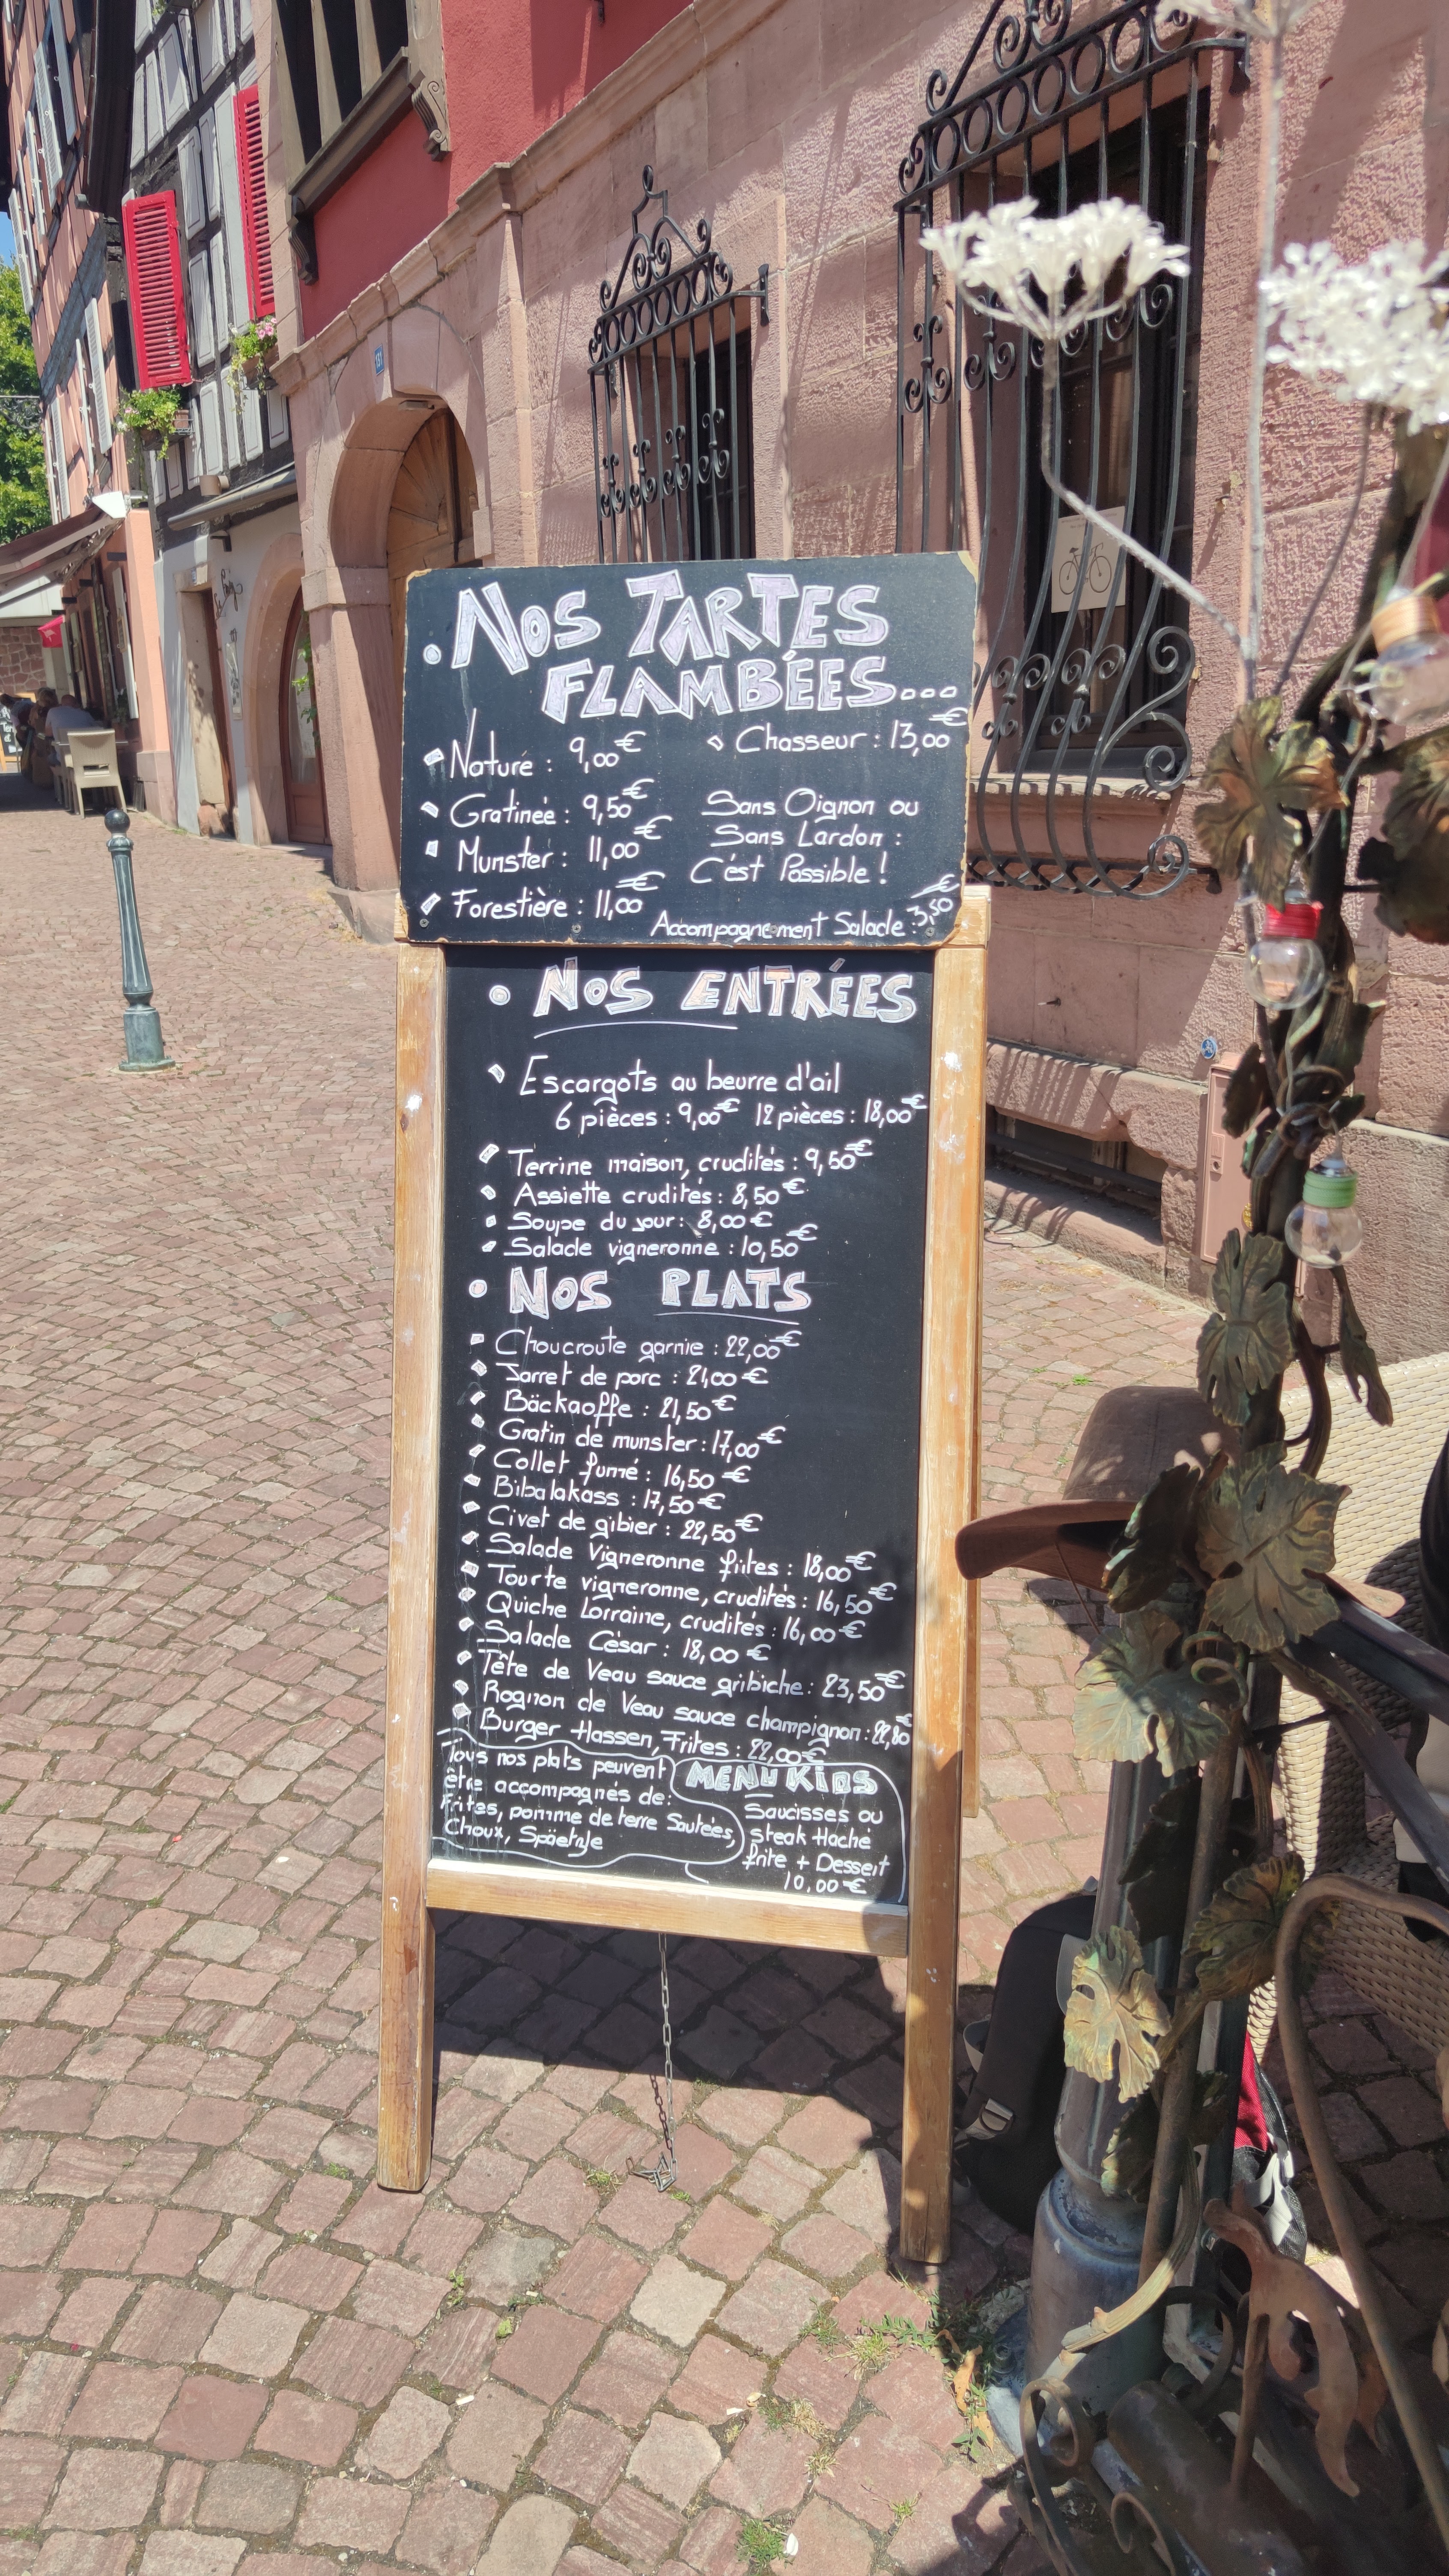 131
• Nos TARTES
FLAMBÉES...
Nature : 9,00€
Gratinée : 9,50€
Munster : 11,00€
Forestière : 11,00€
Chasseur : 13,00€
Sans Oignon ou
Sans Lardon :
C'est Possible !
Accompagnement Salade : 3,50€
• NOS ENTRÉES
Escargots au beurre d'ail
6 pièces : 9,00€ 12 pièces : 18,00€
Terrine maison, crudités : 9,50€
Assiette crudités : 8,50€
Soupe du jour : 8,00€
Salade vigneronne : 10,50€
• NOS PLATS
Choucroute garnie : 22,00€
Jarret de porc : 21,00€
Bäckaoffe : 21,50€
Gratin de munster : 17,00€
Collet fumé : 16,50€
Bibalakass : 17,50€
Civet de gibier : 22,50€
Salade Vigneronne frites : 18,00€
Tourte vigneronne, crudités : 16,50€
Quiche Lorraine, crudités : 16,00€
Salade César : 18,00€
Tête de Veau sauce gribiche : 23,50€
Rognon de Veau sauce champignon : 22,80€
Burger Hassen, Frites : 22,00€
Tous nos plats peuvent
être accompagnés de:
Frites, pomme de terre Sautées,
Choux, Späetzle
MENU KIDS
Saucisses ou
steak Haché
frite + Dessert
10,00€